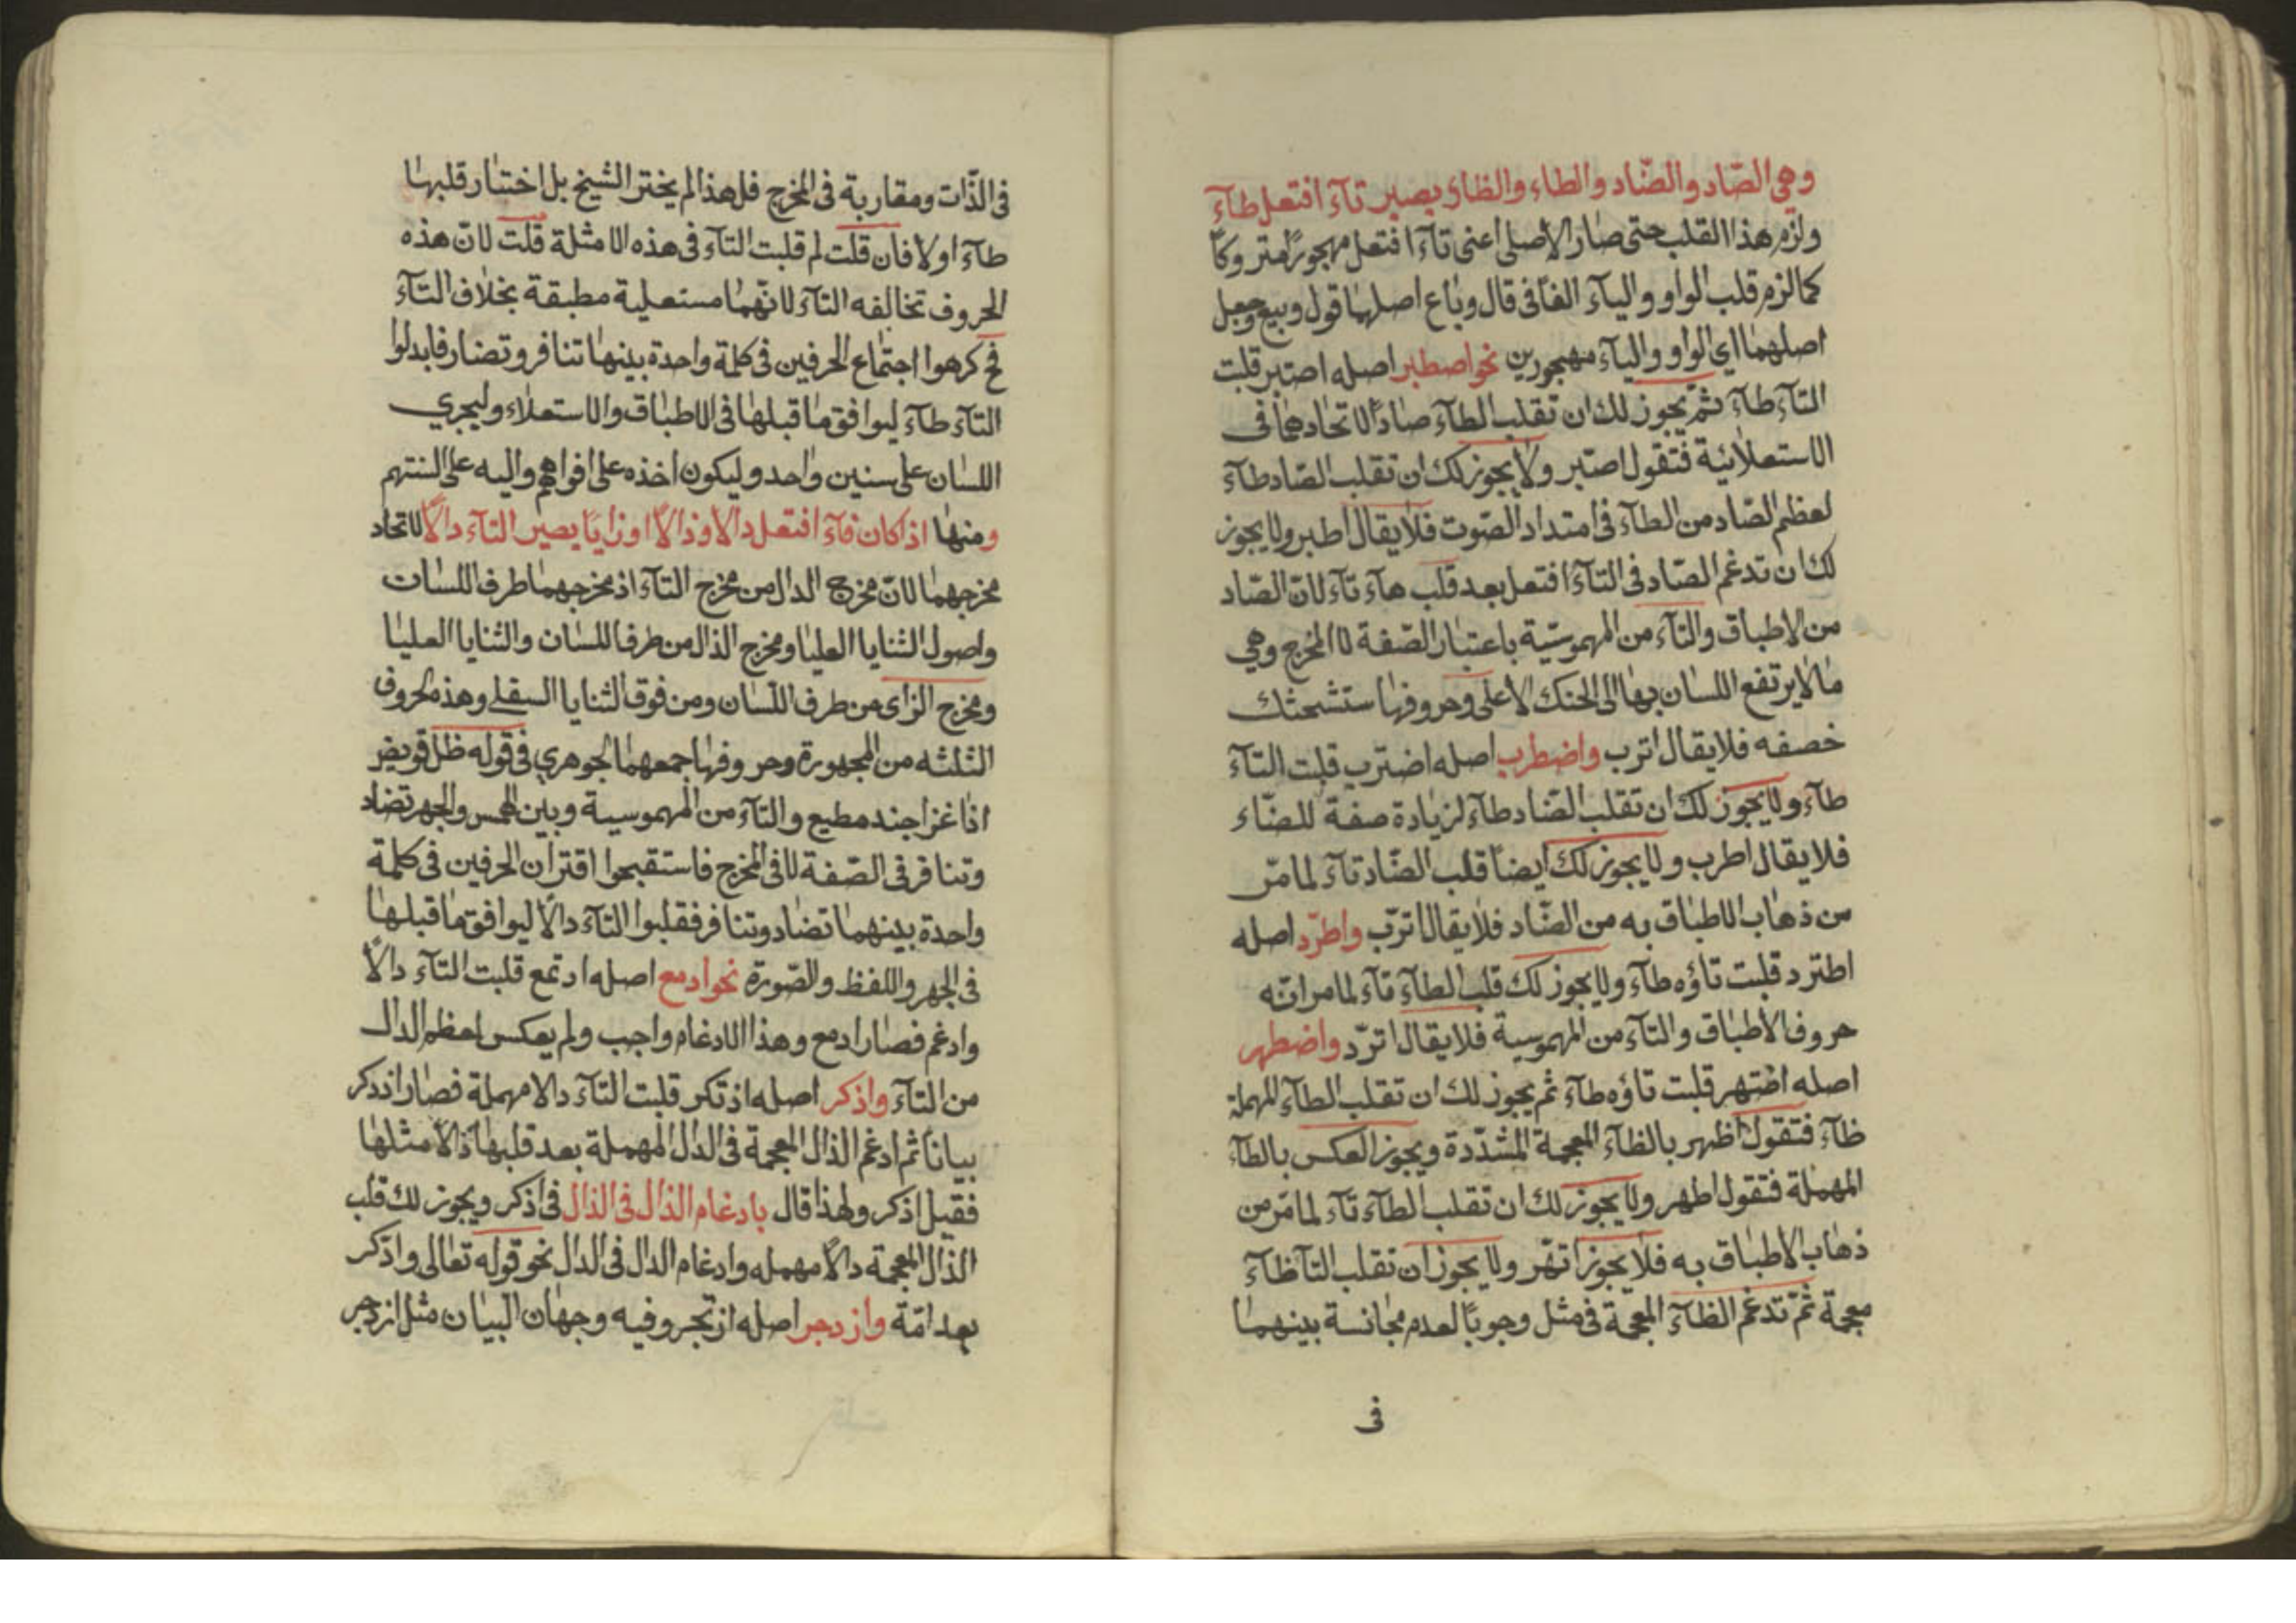 وهي الصّاد والضّاد والطاء والظاء يصير تآء افتعل طآء
ولزم هذا القلب حتى صار الأصلى اعنى تآء افتعل مهجورًا متروكًا
كما لزم قلب الواو واليآء الفًا فى قال وباع اصلهما قول وبيع وجعل
اصلهما اي الواو واليآء مهجورين نحو اصطبر اصله اصتبر قلبت
التآء طآء ثمّ يجوز لك ان تقلب الطآء صادًا لاتحادهما فى
الاستعلائية فتقول اصّبر ولا يجوز لك ان تقلب الصّاد طآء
لعظم الصّاد من الطآء فى امتداد الصّوت فلا يقال اطبر ولا يجوز
لك ان تدغم الصّاد فى التآء افتعل بعد قلب هآء تآء لانّ الصّاد
من الاطباق والتآء من المهموسيّة باعتبار الصّفة لا المخرج وهي
ما لا يرتفع اللسان بها الى الحنك الأعلى وحروفها ستشحثك
خصفه فلا يقال اترب واضطرب اصله اضترب قلبت التآء
طآء ولا يجوز لك ان تقلب الضّاد طآء لزيادة صفة للضّاء
فلا يقال اطرب ولا يجوز لك ايضًا قلب الضّاد تآء لما مرّ
من ذهاب الاطباق به من الضّاد فلا يقال اترّب واطرّد اصله
اطترد قلبت تاؤه طآء ولا يجوز لك قلب الطآء تآء لما مر انّه
حروف الأطباق والتآء من المهموسية فلا يقال اترّد واضطهر
اصله اضتهر قلبت تاؤه طآء ثم يجوز لك ان تقلب الطآء المهملة
ظآء فتقول اظهر بالظآء المعجمة المشدّدة ويجوز العكس بالطآء
المهملة فتقول اطهر ولا يجوز لك ان تقلب الطآء تآء لما مرّ من
ذهاب الاطباق به فلا يجوز اتهّر ولا يجوز ان تقلب التآ ظآء
معجمة ثمّ تدغم الظآء المعجمة فى مثل وجوبًا لعدم مجانسة بينهما
فى
فى الذّات ومقاربة فى المخرج فلهذا لم يختر الشيخ بل اختار قلبها
طآء اولا فأن قلت لم قلبت التآء فى هذه الامثلة قلت لانّ هذه
الحروف تخالفه التآء لانّهما مستعلية مطبقة بخلاف التآء
فح كرهوا اجتماع الحرفين فى كلمة واحدة بينهما تنافر وتضار فابدلوا
التآء طآء ليوافق ما قبلها فى الاطباق والاستعلاء وليجري
اللسان على سنين واحد وليكون اخذه على افواههم واليه على السنتهم
ومنها اذا كان فآء افتعل دالًا وذالًا اوزايًا يصير التآء دالًا لاتحاد
مخرجهما لانّ مخرج الدال من مخرج التآء اذ مخرجهما طرف اللسان
واصول الثنايا العليا ومخرج الذال من طرف اللسان والثنايا العليا
ومخرج الزاى من طرف اللّسان ومن فوق الثنايا السفلے وهذه الحروف
الثلثه من المجهورة وحروفها جمعهما الجوهري فى قوله ظل قو يض
اذا غزا جند مطيع والتآء من المهموسية وبين الهمس والجهر تضاد
وتنافر فى الصّفة لا فى المخرج فاستقبحوا اقتران الحرفين فى كلمة
واحدة بينهما تضاد وتنافر فقلبوا التآء دالًا ليوافق ما قبلها
فى الجهر واللفظ والصّورة نحو ادمع اصله ادتمع قلبت التآء دالًا
وادغم فصار ادمع وهذا الادغام واجب ولم يعكس لعظم الدال
من التآء واذكر اصله اذتكر قلبت التآء دالا مهملة فصار اذدكر
بيانًا ثم ادغم الذال المعجمة فى الدال المهملة بعد قلبها ذالًا مثلها
فقيل اذكر ولهذا قال بادغام الذال فى الذال فى اذكر ويجوز لك قلب
الذال المعجمة دالًا مهمله وادغام الدال فى الدال نحو قوله تعالى وادّكر
بعد امّة وازدجر اصله ازتجر وفيه وجهان البيان مثل ازدجر